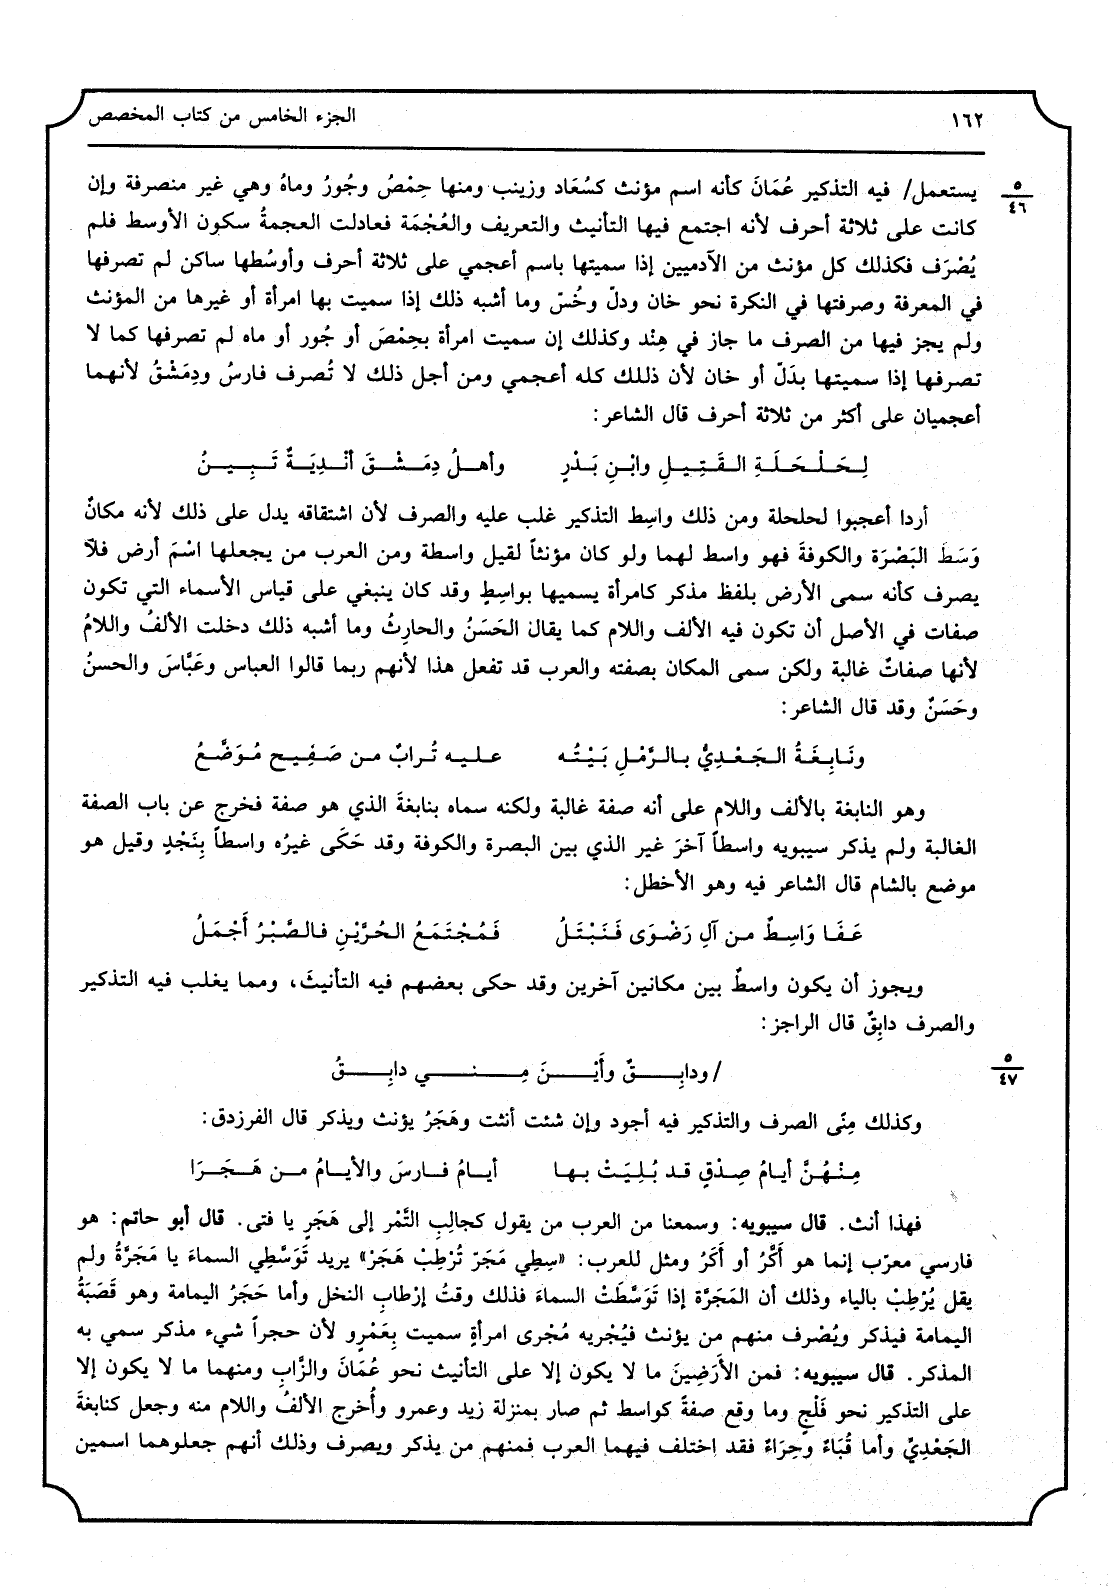 ١٦٢ الجزء الخامس من كتاب المخصص
٥
٤٦
يستعمل/ فيه التذكير عُمَانَ كأنه اسم مؤنث كسُعَاد وزينب ومنها حِمْصُ وجُورُ وماهُ وهي غير منصرفة وإن
كانت على ثلاثة أحرف لأنه اجتمع فيها التأنيث والتعريف والعُجْمَة فعادلت العجمةُ سكون الأوسط فلم
يُصْرَف فكذلك كل مؤنث من الآدميين إذا سميتها باسم أعجمي على ثلاثة أحرف وأوسُطها ساكن لم تصرفها
في المعرفة وصرفتها في النكرة نحو خان ودلّ وخُسّ وما أشبه ذلك إذا سميت بها امرأة أو غيرها من المؤنث
ولم يجز فيها من الصرف ما جاز في هِنْد وكذلك إن سميت امرأة بحِمْصَ أو جُور أو ماه لم تصرفها كما لا
تصرفها إذا سميتها بدَلّ أو خان لأن ذللك كله أعجمي ومن أجل ذلك لا تُصرف فارسُ ودِمَشْقُ لأنهما
أعجميان على أكثر من ثلاثة أحرف قال الشاعر:
لِحَلْحَلَةِ القَتِيلِ وابْنِ بَدْرٍ وأهلُ دِمَشْقَ أنْدِيَةٌ تَبِينُ
أردا أعجبوا لحلحلة ومن ذلك واسِط التذكير غلب عليه والصرف لأن اشتقاقه يدل على ذلك لأنه مكانٌ
وَسَطَ البَصْرَة والكوفةَ فهو واسط لهما ولو كان مؤنثاً لقيل واسطة ومن العرب من يجعلها اسْمَ أرض فلآ
يصرف كأنه سمى الأرض بلفظ مذكر كامرأة يسميها بواسِطٍ وقد كان ينبغي على قياس الأسماء التي تكون
صفات في الأصل أن تكون فيه الألف واللام كما يقال الحَسَنُ والحارِثُ وما أشبه ذلك دخلت الألفُ واللامُ
لأنها صفاتٌ غالبة ولكن سمى المكان بصفته والعرب قد تفعل هذا لأنهم ربما قالوا العباس وعَبَّاسَ والحسنُ
وحَسَنٌ وقد قال الشاعر:
ونَابِغَةُ الجَعْدِيُّ بالرَّمْلِ بَيْتُه عليه تُرابٌ من صَفِيح مُوَضَّعُ
وهو النابغة بالألف واللام على أنه صفة غالبة ولكنه سماه بنابغةَ الذي هو صفة فخرج عن باب الصفة
الغالبة ولم يذكر سيبويه واسطاً آخرَ غير الذي بين البصرة والكوفة وقد حَكَى غيرُه واسطاً بِنَجْدٍ وقيل هو
موضع بالشام قال الشاعر فيه وهو الأخطل:
عَفَا وَاسِطٌ من آلِ رَضْوَى فَنَبْتَلُ فَمُجْتَمَعُ الحُرَّيْنِ فالصَّبْرُ أَجْمَلُ
ويجوز أن يكون واسطٌ بين مكانين آخرين وقد حكى بعضهم فيه التأنيثَ، ومما يغلب فيه التذكير
والصرف دابِقٌ قال الراجز:
٥
٤٧
/ ودابِقٌ وأَيْنَ مِني دابِقُ
وكذلك مِنّى الصرف والتذكير فيه أجود وإن شئت أنثت وهَجَرُ يؤنث ويذكر قال الفرزدق:
مِنْهُنَّ أيامُ صِدْقٍ قد بُلِيَتْ بها أيامُ فارسَ والأيامُ من هَجَرَا
فهذا أنث. قال سيبويه: وسمعنا من العرب من يقول كجالِبِ التَّمْر إلى هَجَرٍ يا فتى. قال أبو حاتم: هو
فارسي معرّب إنما هو أكَّرُ أو أكَرُ ومثل للعرب: «سِطِي مَجَرّ تُرْطِبْ هَجَرْ» يريد تَوَسَّطِي السماءَ يا مَجَرَّةُ ولم
يقل يُرْطِبْ بالياء وذلك أن المَجَرَّة إذا تَوَسَّطَتْ السماءَ فذلك وقتُ إرْطابِ النخل وأما حَجَرُ اليمامة وهو قَصَبَةُ
اليمامة فيذكر ويُصْرف منهم من يؤنث فيُجْريه مُجْرى امرأةٍ سميت بِعَمْرٍو لأن حجراً شيء مذكر سمي به
المذكر. قال سيبويه: فمن الأَرَضِينَ ما لا يكون إلا على التأنيث نحو عُمَانَ والزَّابِ ومنهما ما لا يكون إلا
على التذكير نحو فَلْجٍ وما وقع صفةً كواسط ثم صار بمنزلة زيد وعمرو وأُخرج الألفُ واللام منه وجعل كنابغةَ
الجَعْدِيِّ وأما قُبَاءٌ وحِرَاءٌ فقد اختلف فيهما العرب فمنهم من يذكر ويصرف وذلك أنهم جعلوهما اسمين